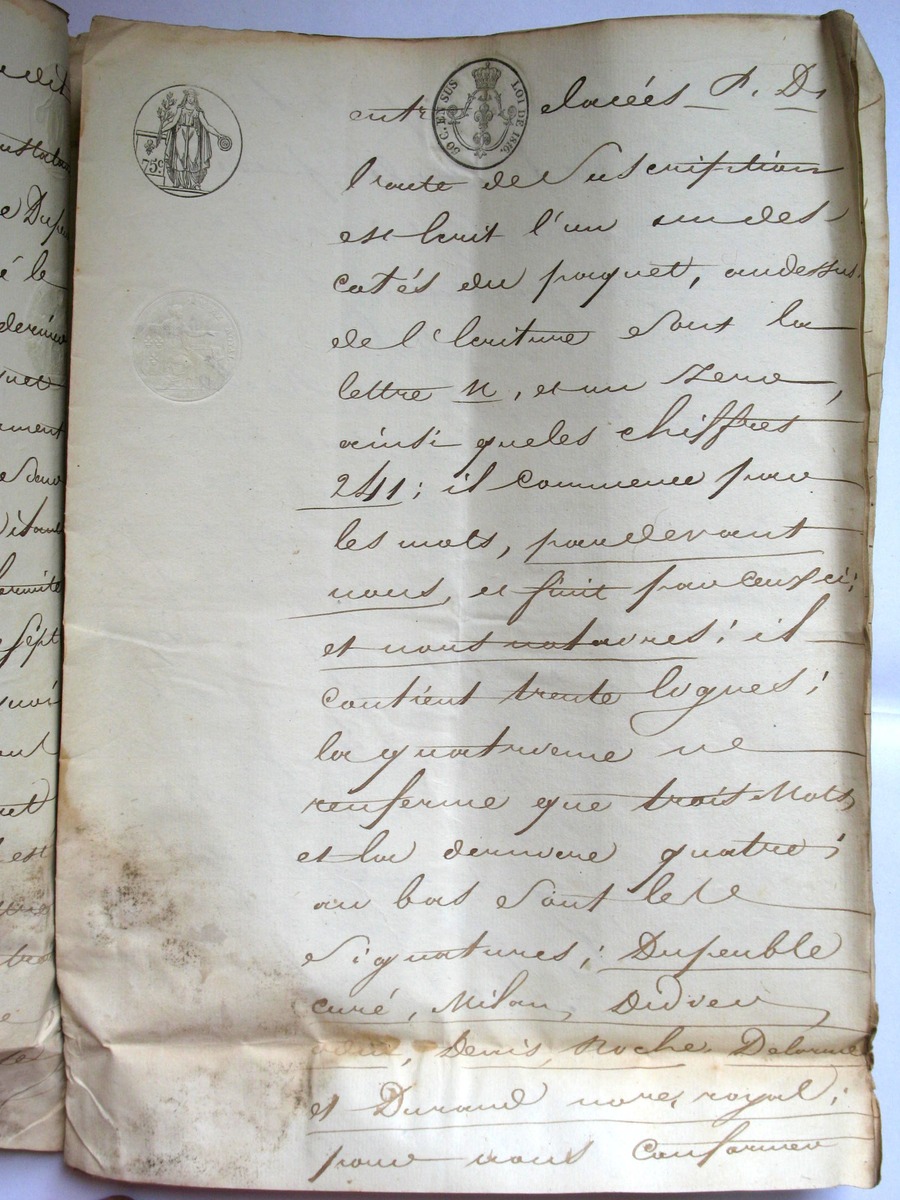 75 c
50 C. EN SUS LOI DE 1816.
entrelacées P. D.
l'acte de Suscription
est écrit l'un sur des
cotés du paquet, au dessus
de l'écriture sous la
lettre N, et un Zero,
ainsi que les chiffres
241; il commence par
les mots, pardevant
nous, et finit par ceux ci;
et nous notaires; il
contient trente lignes;
la quatrieme ne
renferme que trois Mots
et la derniere quatre;
au bas sont les
Signatures; Dupeuble
curé, Milan, Didier
Denis, Roche, Delorme
et Durand nore. royal;
pour nous Conformer
é le
quet
ument
Sept
est